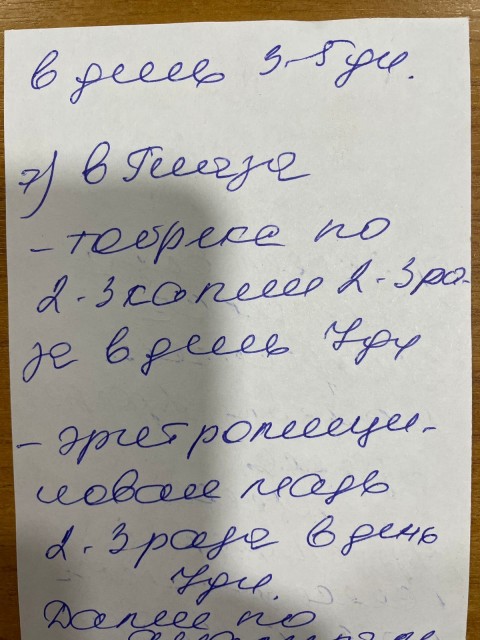 в день 3-5 дн.
7) в Глаза
- тобрекс по
2-3 капли 2-3 ра-
за в день 7 дн
- эритромици-
новая мазь
2-3 раза в день
7 дн.
Далее по